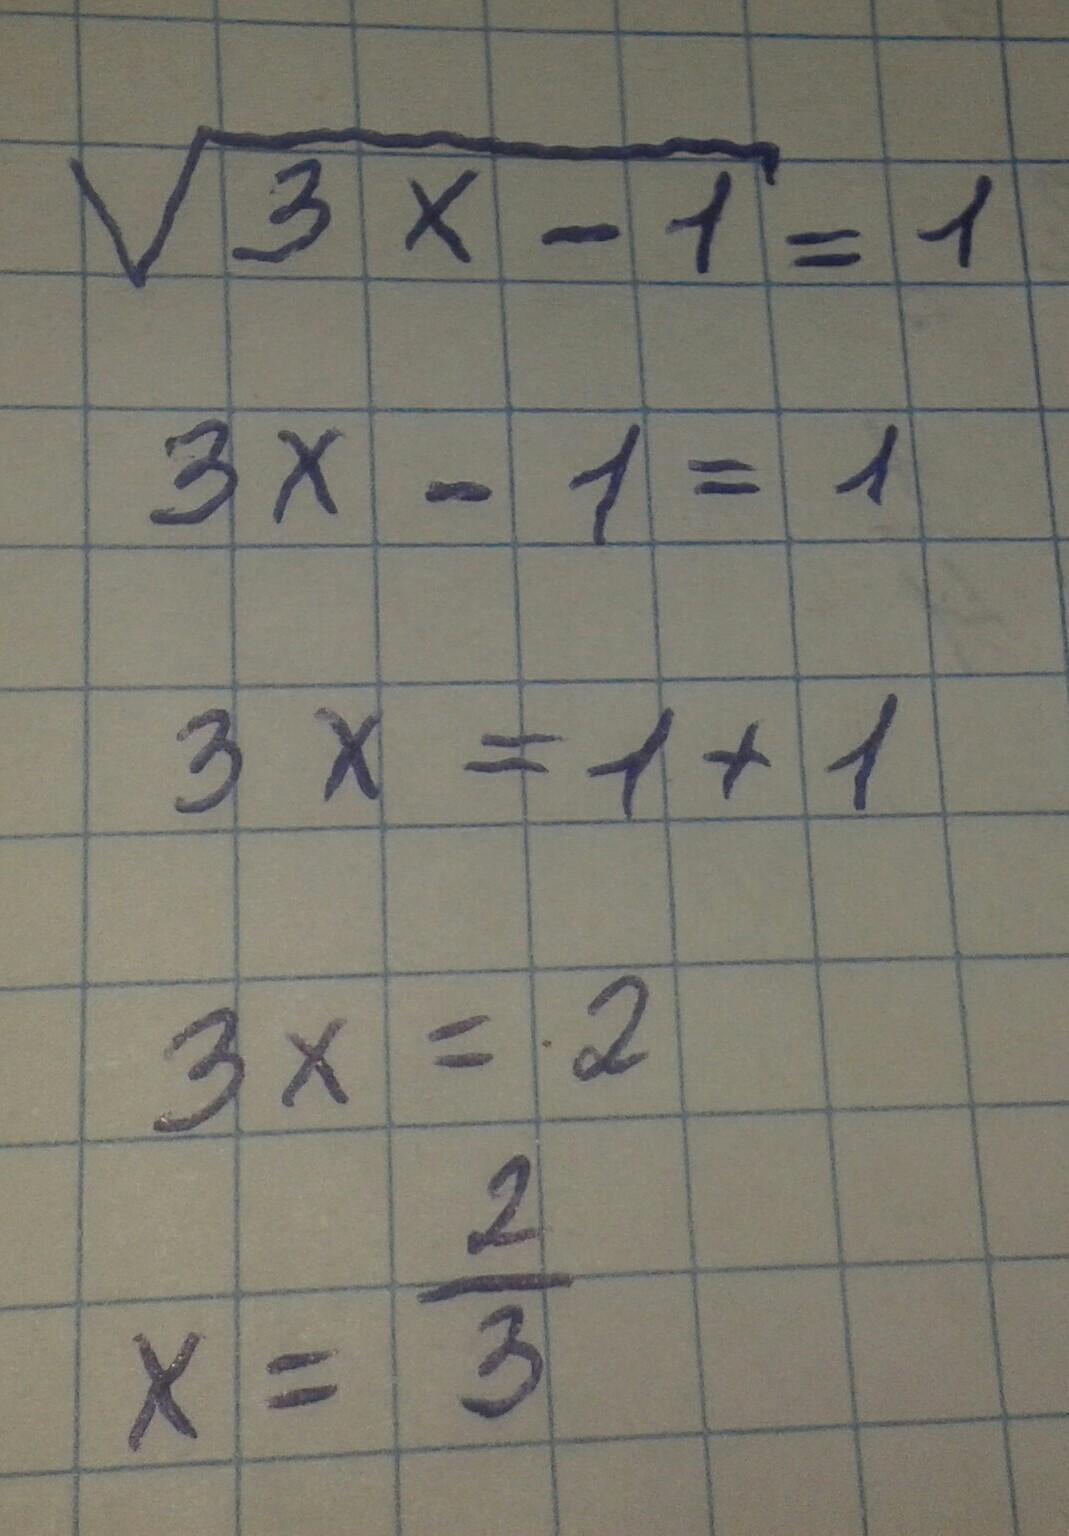 √(3x - 1) = 1
3x - 1 = 1
3x = 1 + 1
3x = 2
x = 2/3